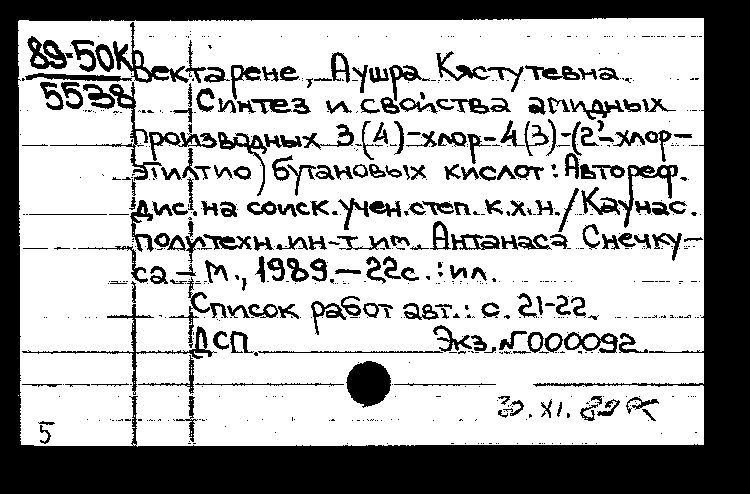 89-50К
5538
Вектарене, Аушра Кястутевна.
Синтез и свойства амидных
производных 3(4)-хлор-4(3)-(2'-хлор-
этилтио) бутановых кислот: Автореф.
дис. на соиск. учен. степ. к.х.н. / Каунас.
политехн. ин-т им. Антанаса Снечку-
са. - М., 1989. - 22с.: ил.
Список работ авт.: с. 21-22.
ДСП. Экз. № 000092.
30.XI.89
5